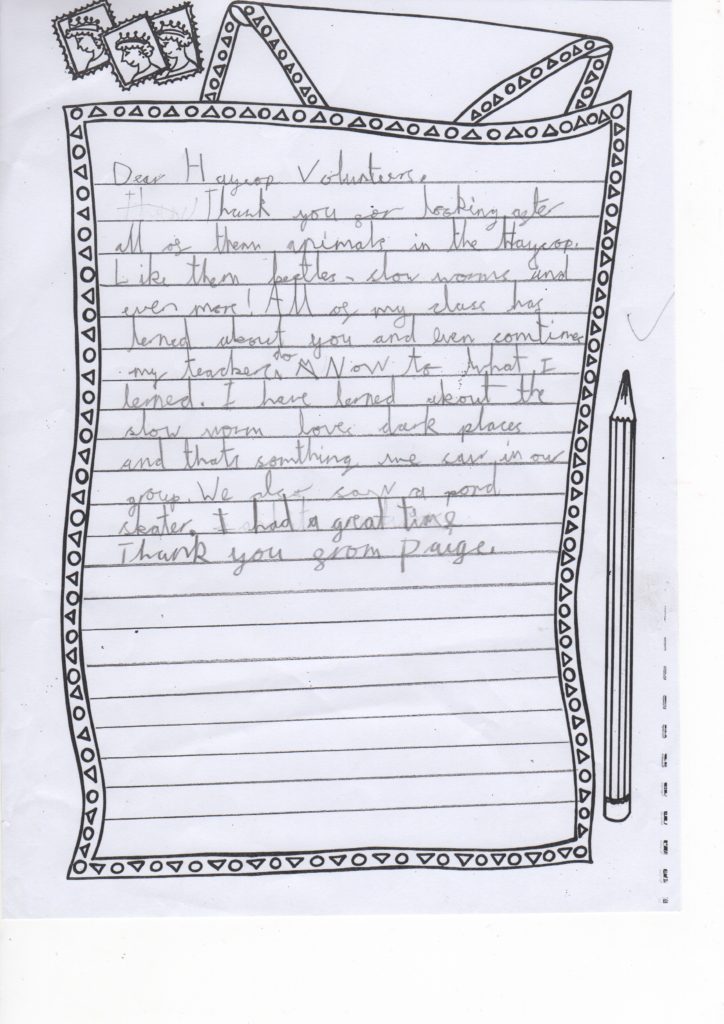 Dear Haycop Volunteers,
Thank you for looking after
all of them animals in the Haycop.
Like them beetles, slow worms and
even more! All of my class has
lerned about you and even somtimes
my teachers to Now to what I
lerned. I have lerned about the
slow worm loves dark places
and thats somthing we saw in our
group. We also saw a pond
skater. I had a great time
Thank you from Paige.